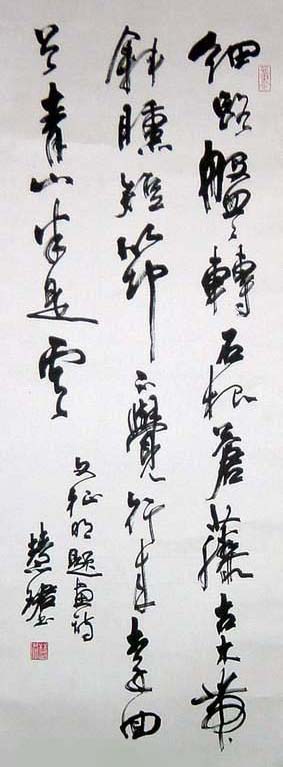 細路盤々轉石根蒼藤古木帶
斜曛短筇不覺行來遠回
首青山半是雲
文征明題畫詩
慧珺